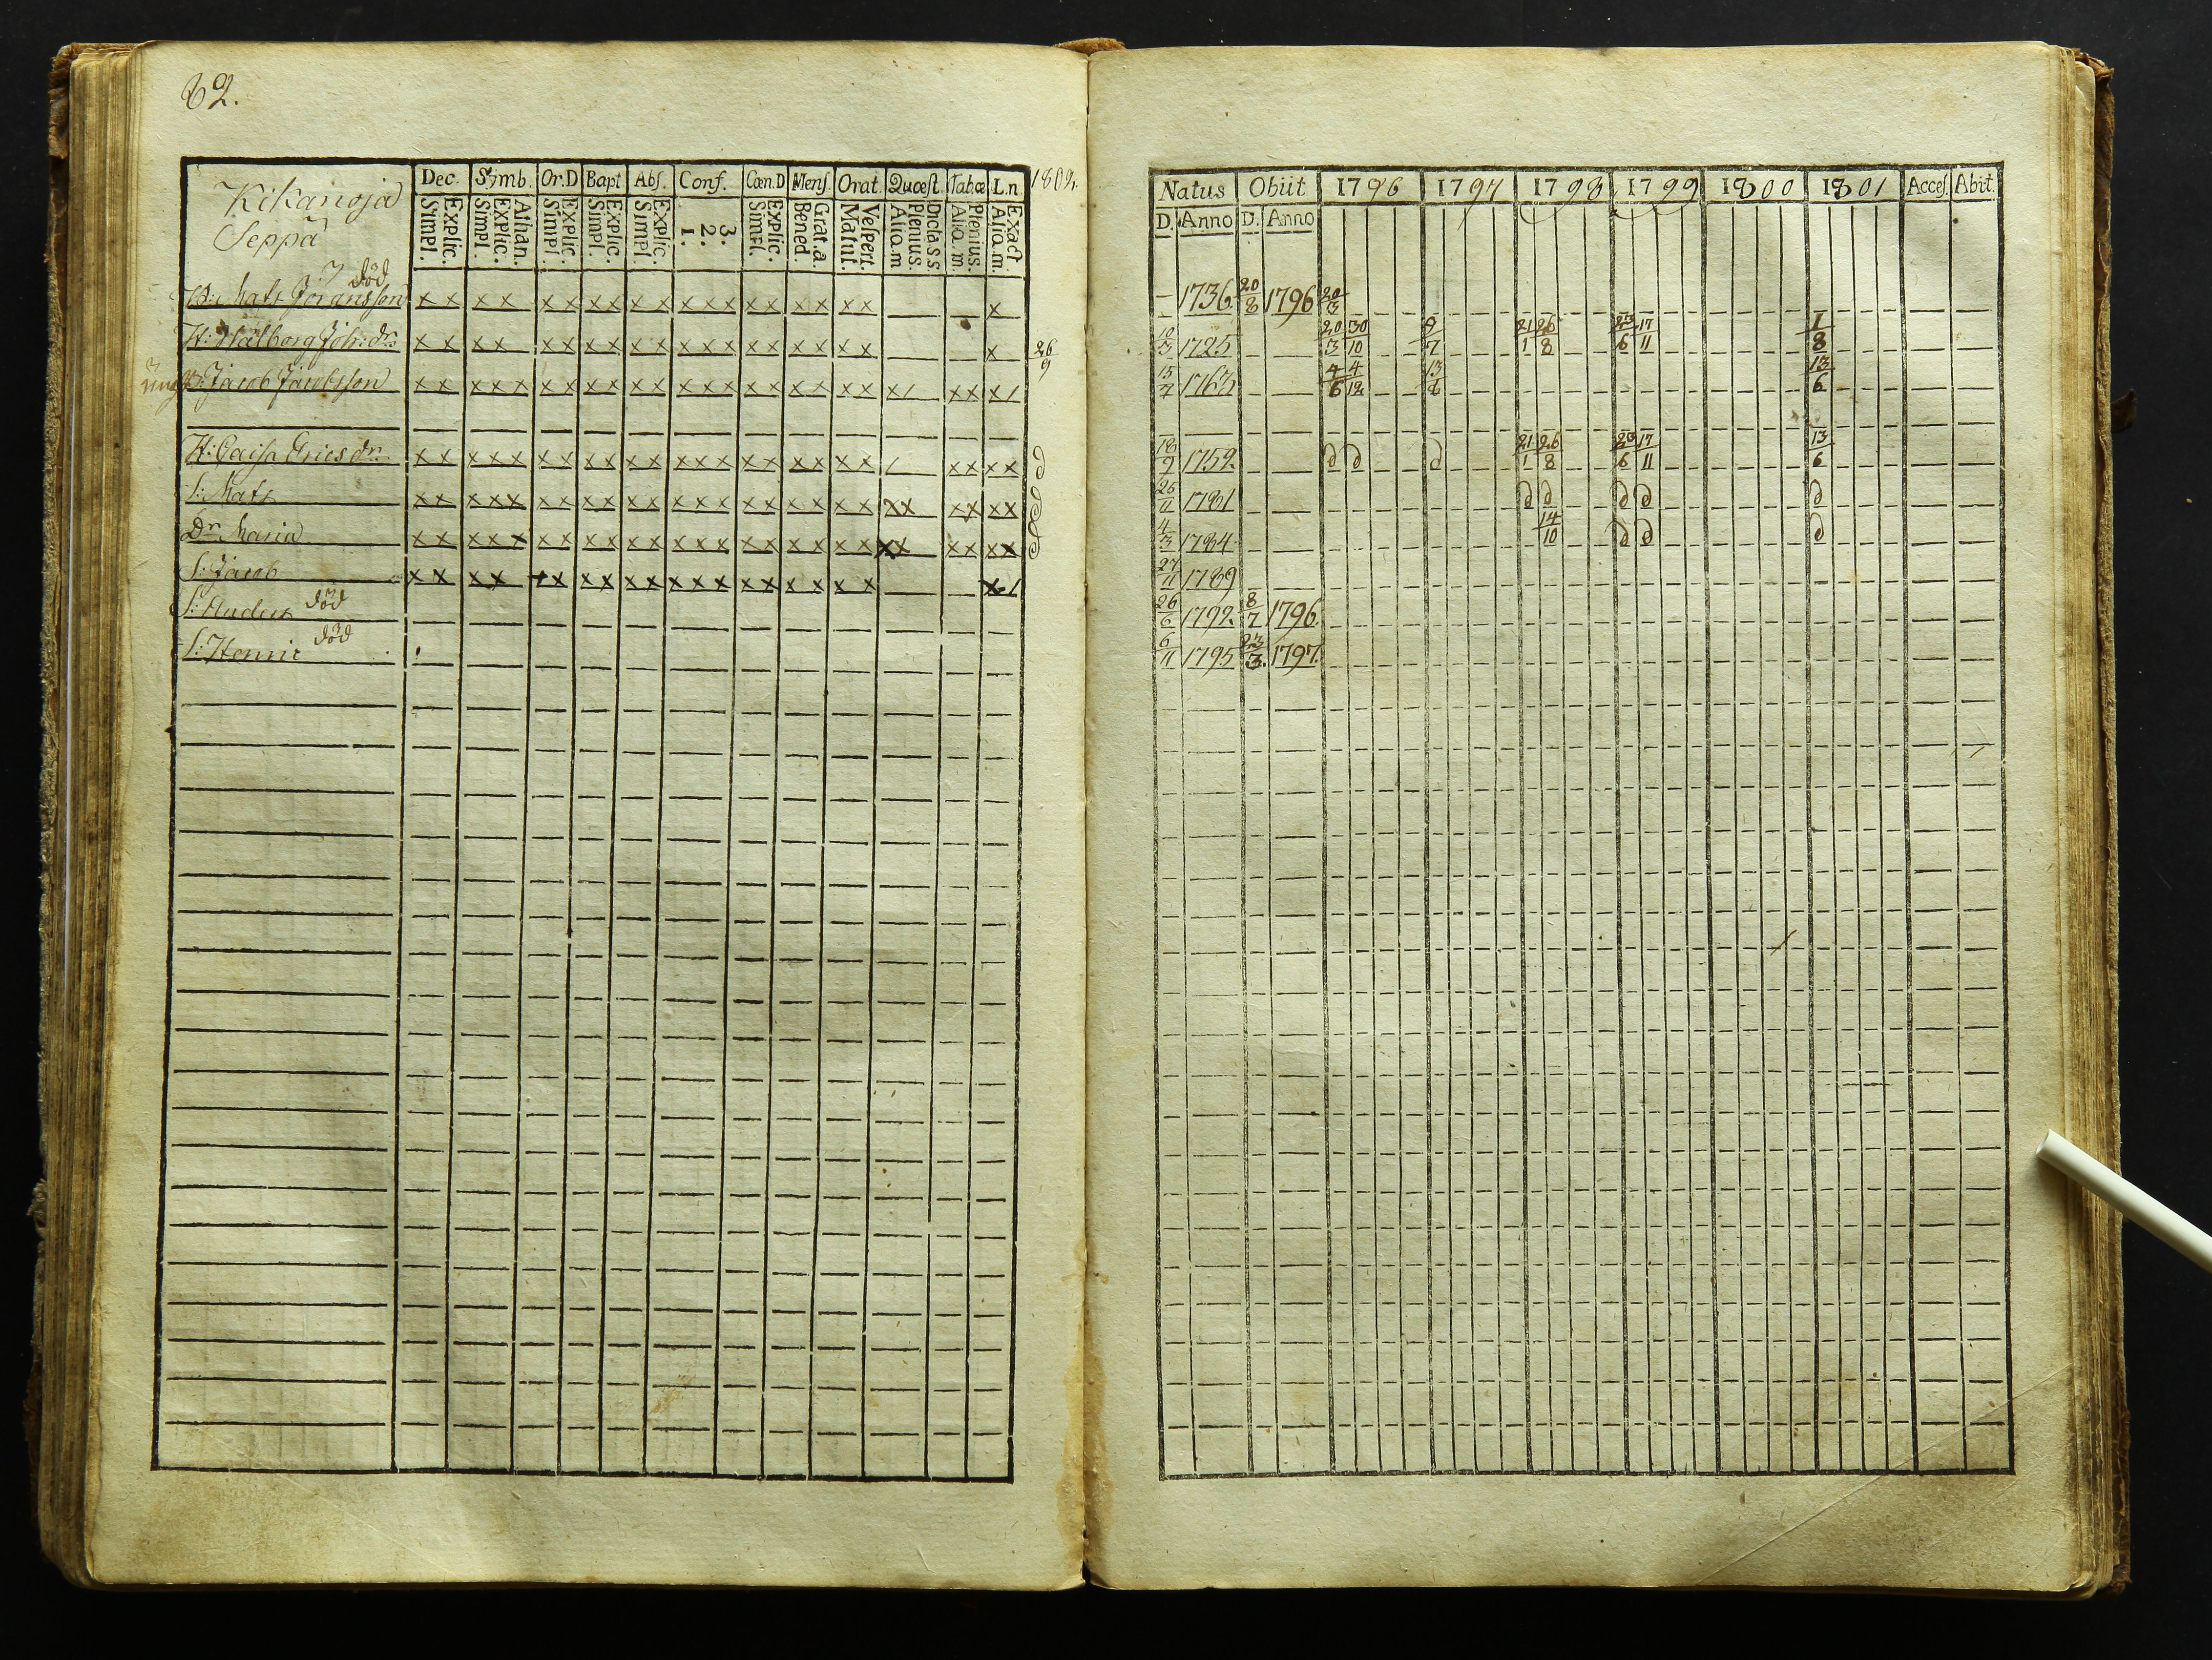 62.
Kikanoja
Seppä
Dec. Simb. Or.D Bapt Abs. Conf. Cœn.D Mens Orat. Quœst Tabœ L.n 1802
Simpl. Explic. Simpl. Explic. Athan. Simpl. Explic. Simpl. Explic. Simpl Explic. 1. 2. 3. Simpl. Explic. Bened. Grat.a. Matut. Vespert. Aliq.m Plenius. Dicta.s.s Aliq.m. Plenius. Aliq.m. Exact
död
Matts Göransson x x x x x x x x x x x x x x x x x x x x
H: Walborg Joh: dr. x x x x x x x x x x x x x x x x x x x x 26/9
Jacob Jacobsson x x x x x x x x x x x x x x x x x x x x x x x x
H: Caisa Erics dr. x x x x x x x x x x x x x x x x x x x x x x x x
S: Matts x x x x x x x x x x x x x x x x x x x x x x x x x x
Dr Maria x x x x x x x x x x x x x x x x x x x x x x x x x x
S: Jacob x x x x x x x x x x x x x x x x x x x x
S: Anders död
S: Henric död
Natus Obiit 1796 1797 1798 1799 1800 1801 Acces Abit.
D. Anno D. Anno
1736. 20/8 1796 20/3
10/3 1725 20/3 30/10 9/7 21/1 26/8 23/6 17/11 1/8
15/7 1763 4/6 4/12 13/6 13/6
18/9 1759. 21/1 26/8 23/6 17/11 13/6
25/11 1781
4/3 1784 14/10
27/11 1789
26/6 1792. 8/7 1796.
6/11 1795 23/3. 1797.